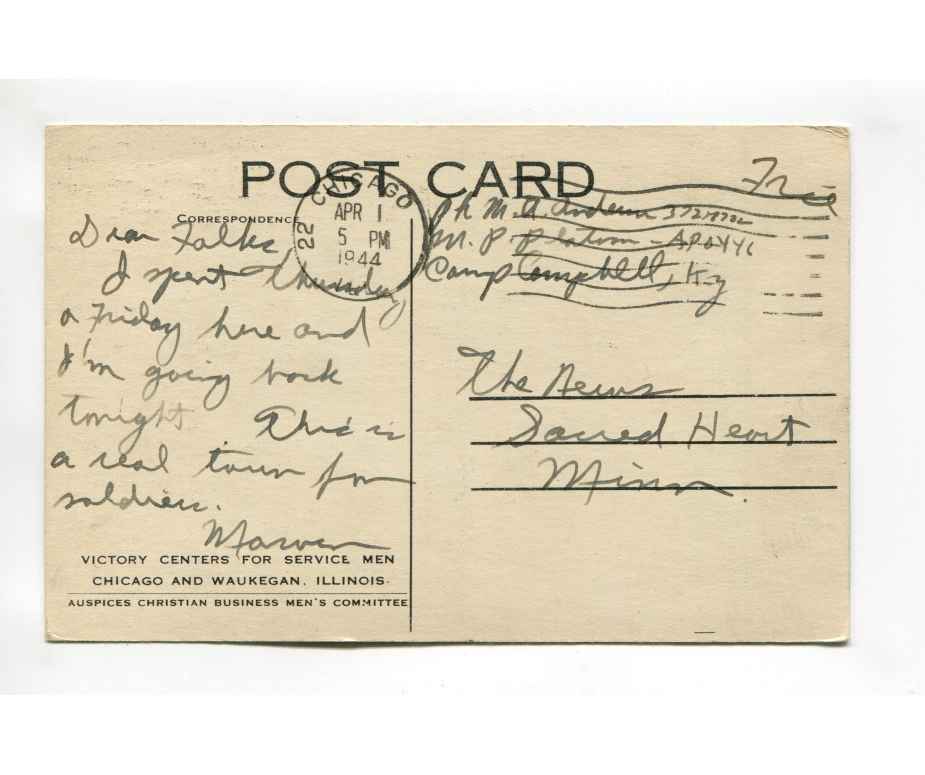 POST CARD
Free
CHICAGO
22
APR 1
5 PM
1944
CORRESPONDENCE
M. A. Anderson
M. P. Platoon - APO 446
Camp Campbell, Ky
Dear Folks
I spent Thursday
a Friday here and
I'm going back
tonight This is
a real town for
soldiers.
Marven
The News
Sacred Heart
Minn.
VICTORY CENTERS FOR SERVICE MEN
CHICAGO AND WAUKEGAN, ILLINOIS
AUSPICES CHRISTIAN BUSINESS MEN'S COMMITTEE